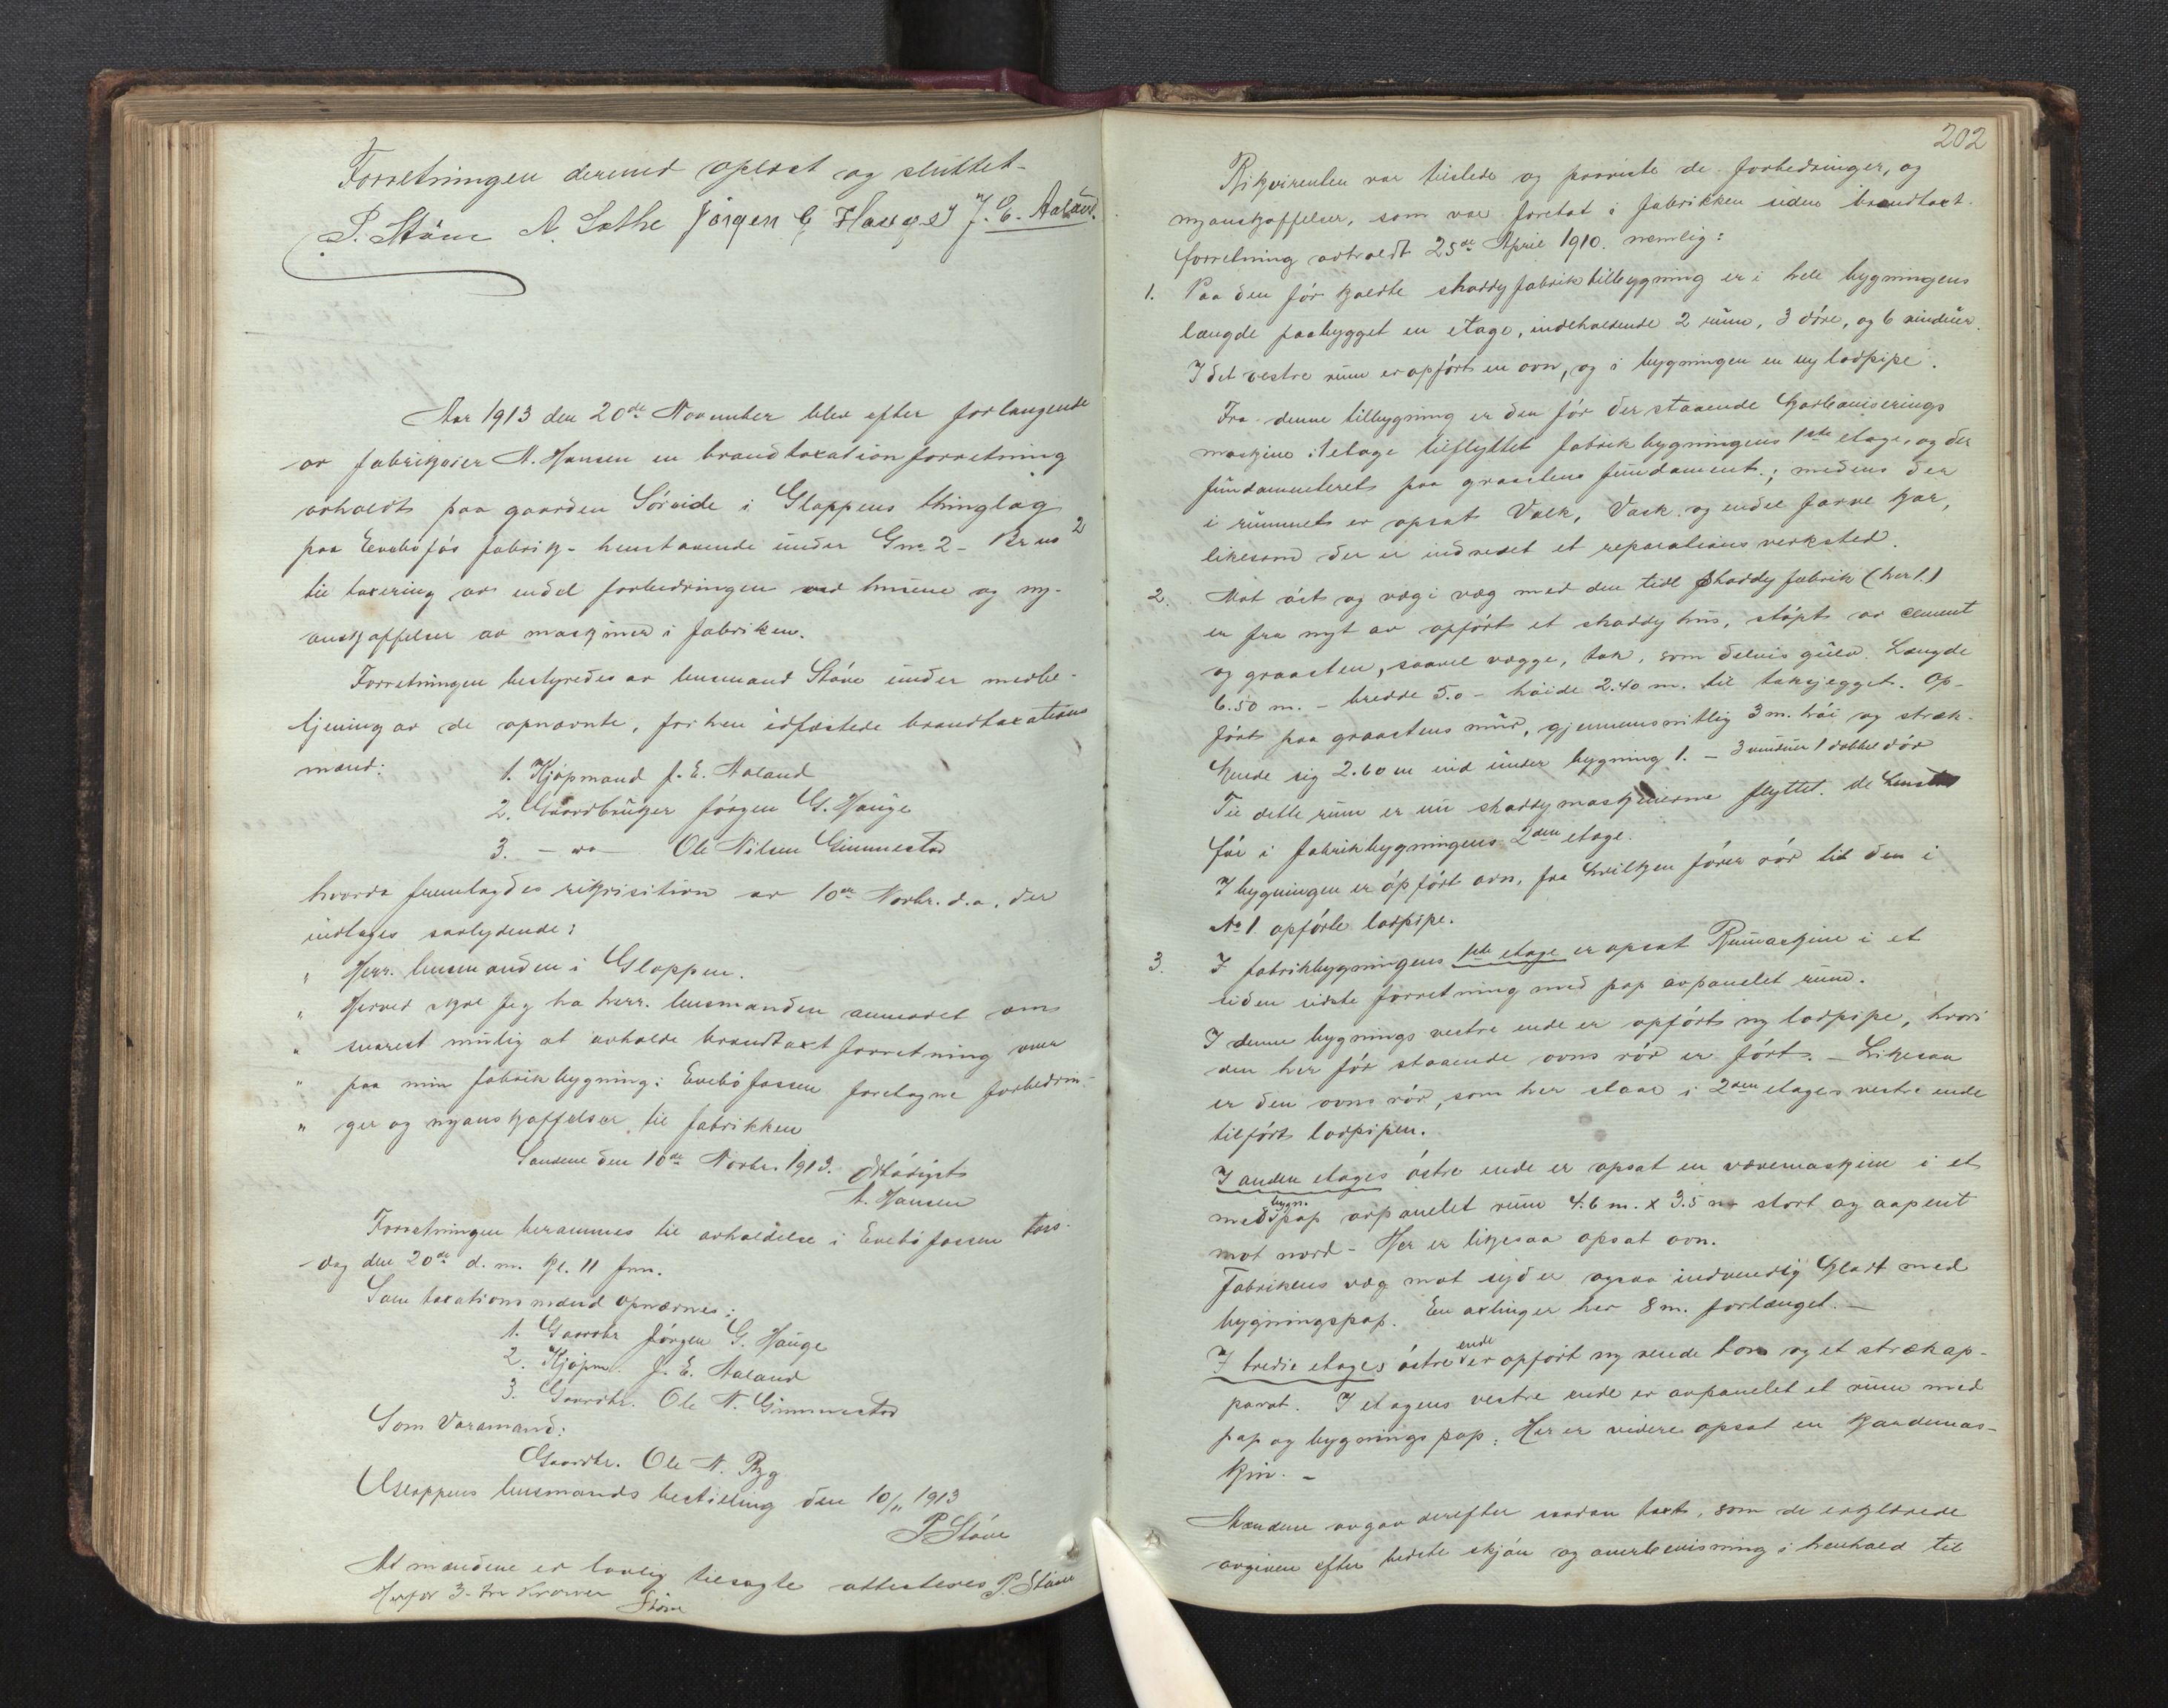 Forretningen dermed oplæst og sluttet.
P. Støve A. Sathe Jörgen G Hauge J. E. Aaland.
Aar 1913 den 20de November blev efter forlangende
av fabrikeier A. Hansen en brandtaxationforretning
avholdt paa gaarden Søreide i Gloppens thinglag
paa Evebøfos fabrik - henstaaende under Gno 2 - Br no 2
til taxering av endel forbedringer ved husene og ny-
anskaffelser av maskiner i fabriken.
Forretningen bestyredes av lensmand Støve under medbe-
tjening av de opnævnte, forhen edfæstede brandtaxations
mænd:
1. Kjøpmand J. E. Aaland
2. Gaardbruger Jørgen G. Hauge
3. — do — Ole Nilsen Gimmestad
hvorda fremlagdes rekvisition av 10de Novbr. d.a. der
indtages saalydende:
" Herr. lensmanden i Gloppen.
" Herved skal jeg ha herr. lensmanden anmodet om
" snarest mulig at avholde brandtaxtforretning over
" paa min fabrikbygning i Evebøfossen foretagne forbedrin-
" ger og nyanskaffelser til fabrikken
Sandene den 10de Novbr. 1913. Ærbødigst
A. Hansen
Forretningen berammes til avholdelse i Evebøfossen tors-
dag den 20de d. m. kl. 11 fmn.
Som taxationsmænd opnævnes:
1. Gaardbr Jørgen G. Hauge
2. Kjøpm. J. E. Aaland
3. Gaardbr. Ole N. Gimmestad
Som Varamand:
Gaardbr. Ole N. Ryg
Gloppens lensmandsbestilling den 10/11 1913
P Støve
At mændene er lovlig tilsagte attesteres P. Støve
Herfor 3- tre Kroner
Støve
202
Rekvirenten var tilstede og paaviste de forbedringer, og
nyanskaffelser, som var foretat i fabrikken siden brandtaxt-
forretning avholdt 25de April 1910. nemlig:
1. Paa den før kaldte shoddyfabriktilbygning er i hele bygningens
længde paabygget en etage, indeholdende 2 rum, 3 døre, og 6 vinduer.
I det vestre rum er opført en ovn, og i bygningen en ny lodpipe.
Fra denne tilbygning er den før der staaende Karboniserings
maskine i 1 etage tilflyttet fabrikbygningens 1ste etage, og der
fundamenteret paa graastens fundament.; medens der
i rummet er opsat Valk, Vask og endel farve kar,
likesom der er indredet et reparations verksted.
2. Mot øst og væg i væg med den tidl shoddyfabrik (her 1.)
er fra nyt av opført et shoddy hus, støpt av cement
og graasten, saavel vægge, tak, som delvis gulv. Længde
6.50 m. - bredde 5.0 - høide 2.40 m. til takskjegget. Op-
ført paa graastens mur, gjennemsnitlig 3 m. høi og stræk-
kende sig 2.60 m ind under bygning 1. - 3 vinduer 1 dobbel dør
Til dette rum er nu shoddymaskinerne flyttet. de
før i fabrikbygningens 2den etage.
I bygningen er opført ovn, fra hvilken fører rør til den i
No 1 opførte lodpipe.
3. I fabrikbygningens 1ste etage er opsat i et
siden sidste forretning med pap avpanelet rum.
I denne bygnings vestre ende er opført ny lodpipe, hvori
den her før staaende ovns rør er ført. - Likesaa
er den ovns rør, som her staar i 2den etages vestre ende
tilført lodpipen.
I anden etages østre ende er opsat en vævemaskine i et
med bygn. pap avpanelet rum 4.6 m. x 3.5 m stort og aapent
mot nord - Her er likesaa opsat ovn.
Fabrikens væg mot syd er ogsaa indvendig klædt med
bygningspap. En axling er her 8 m. forlænget. —
I tredie etages østre ende er opført ny og et strækap-
parat. I etagens vestre ende er avpanelet et rum med
pap og bygningspap; Her er videre opsat en kardemas-
kin. -
Mændene avgav derefter saadan taxt, som de erklærede
avgiven efter bedste skjøn og overbevisning i henhold til